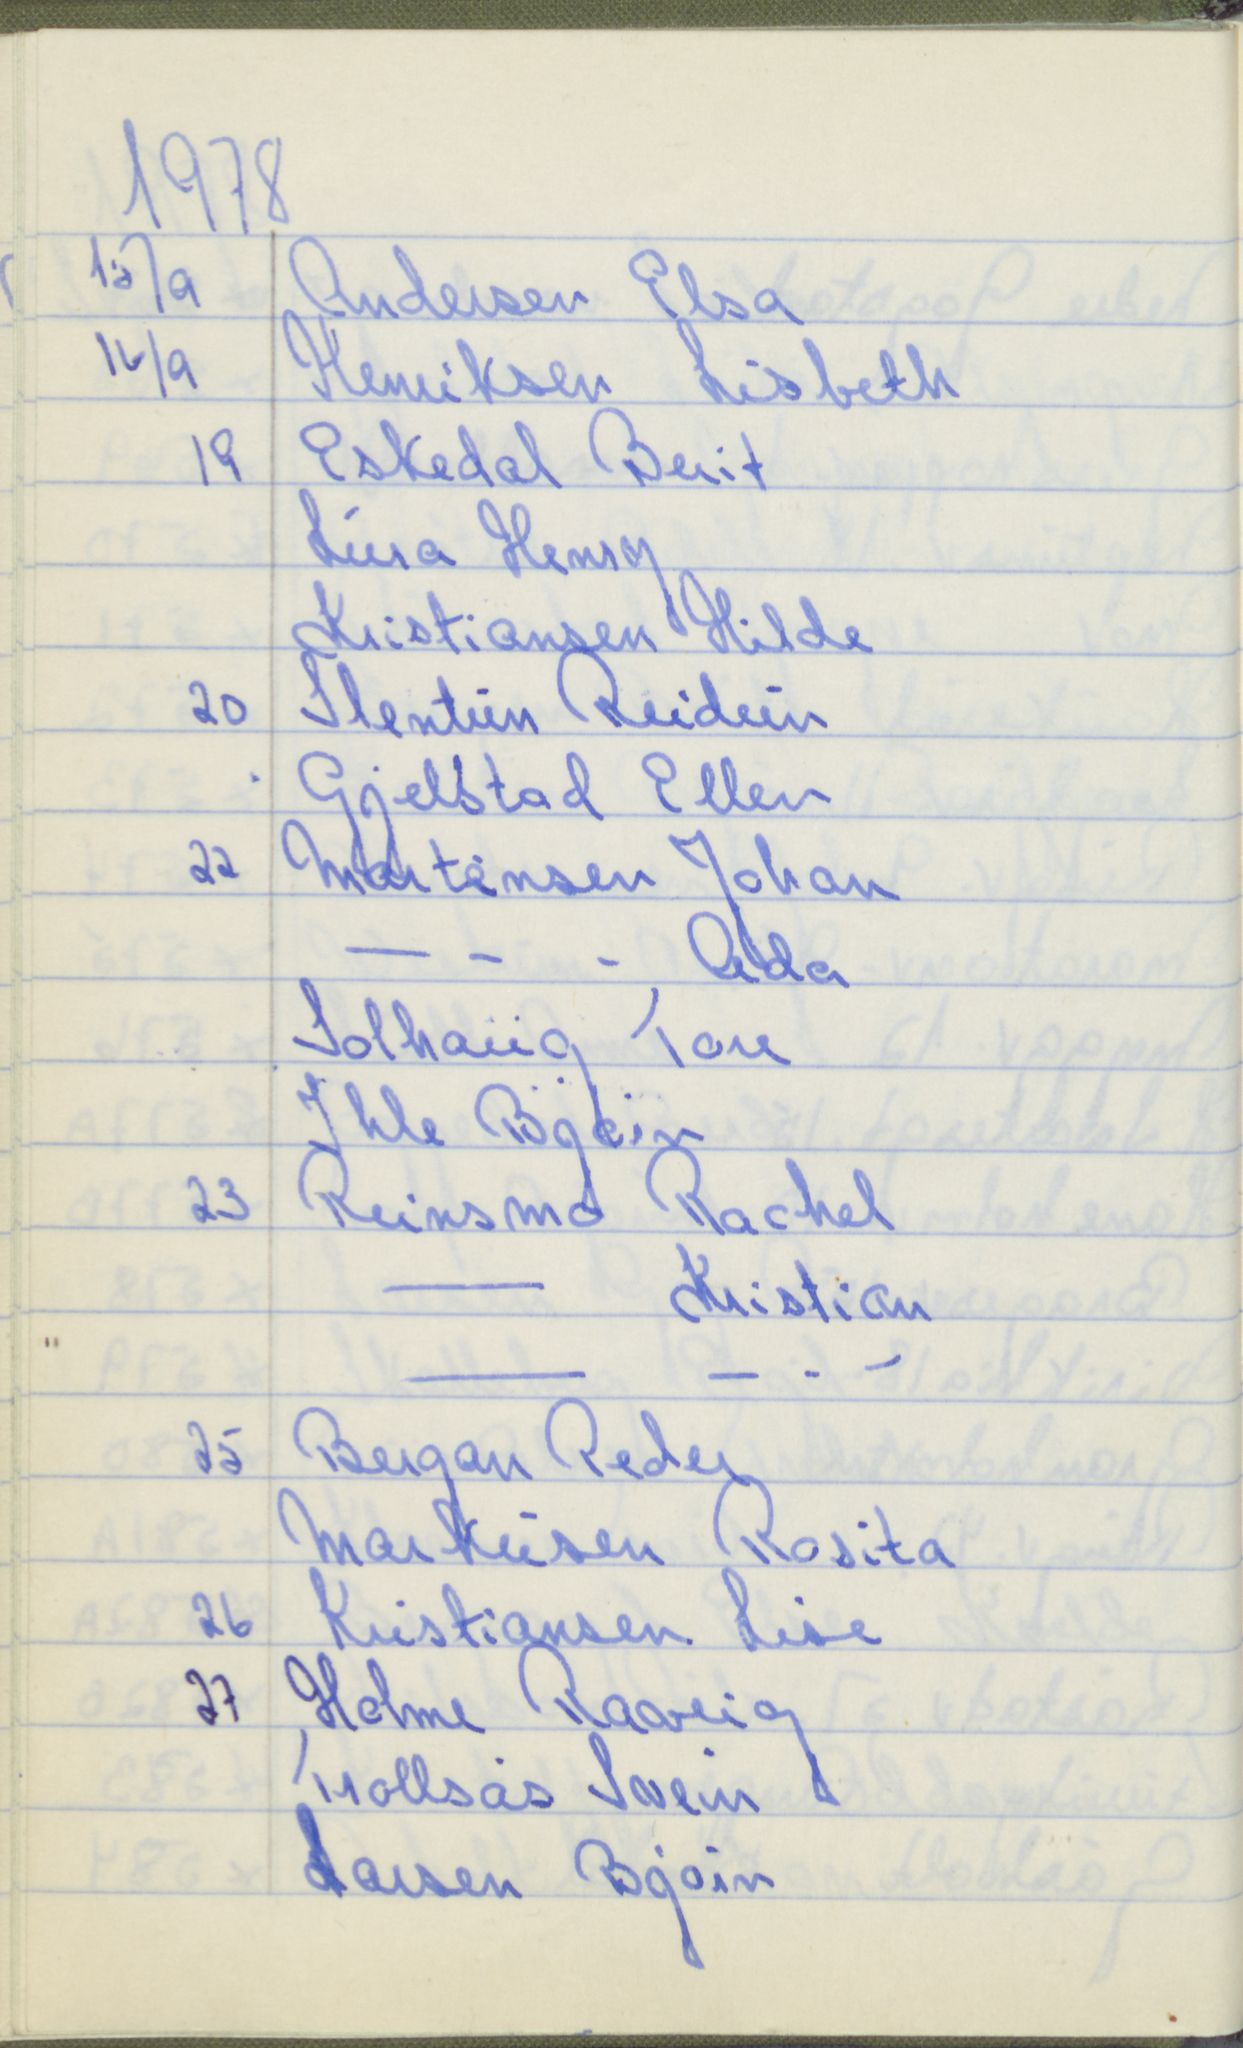 1978
15/9 Andersen Elsa
16/9 Henriksen Lisbeth
19 Eskedal Berit
Lura Henry
Kristiansen Hilde
20 Slentun Reidun
Gjelstad Ellen
22 Martinsen Johan
— - - Aida
Solhaug Tore
Ihle Bjørn
23 Reinsmo Rachel
—— Kristian
—— — - -
25 Bergan Peder
Markusen Rosita
26 Kristiansen Lise
27 Holme Raaveig
Trollsås Svein
Larsen Bjørn